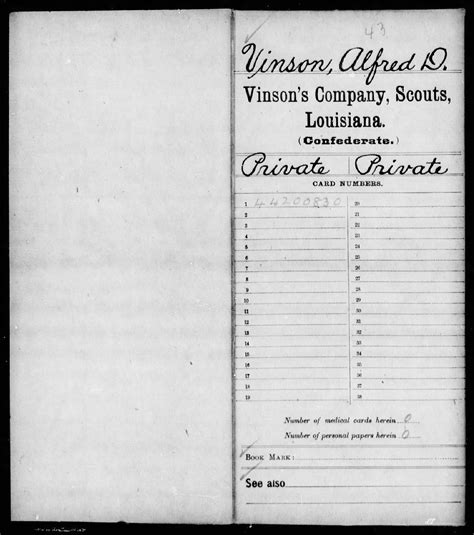 43
Vinson, Alfred D.
Vinson's Company, Scouts,
Louisiana.
(Confederate.)
Private Private
CARD NUMBERS.
1 44200830 20
2 21
3 22
4 23
5 24
6 25
7 26
8 27
9 28
10 29
11 30
12 31
13 32
14 33
15 34
16 35
17 36
18 37
19 38
Number of medical cards herein 0
Number of personal papers herein 0
BOOK MARK:
See also